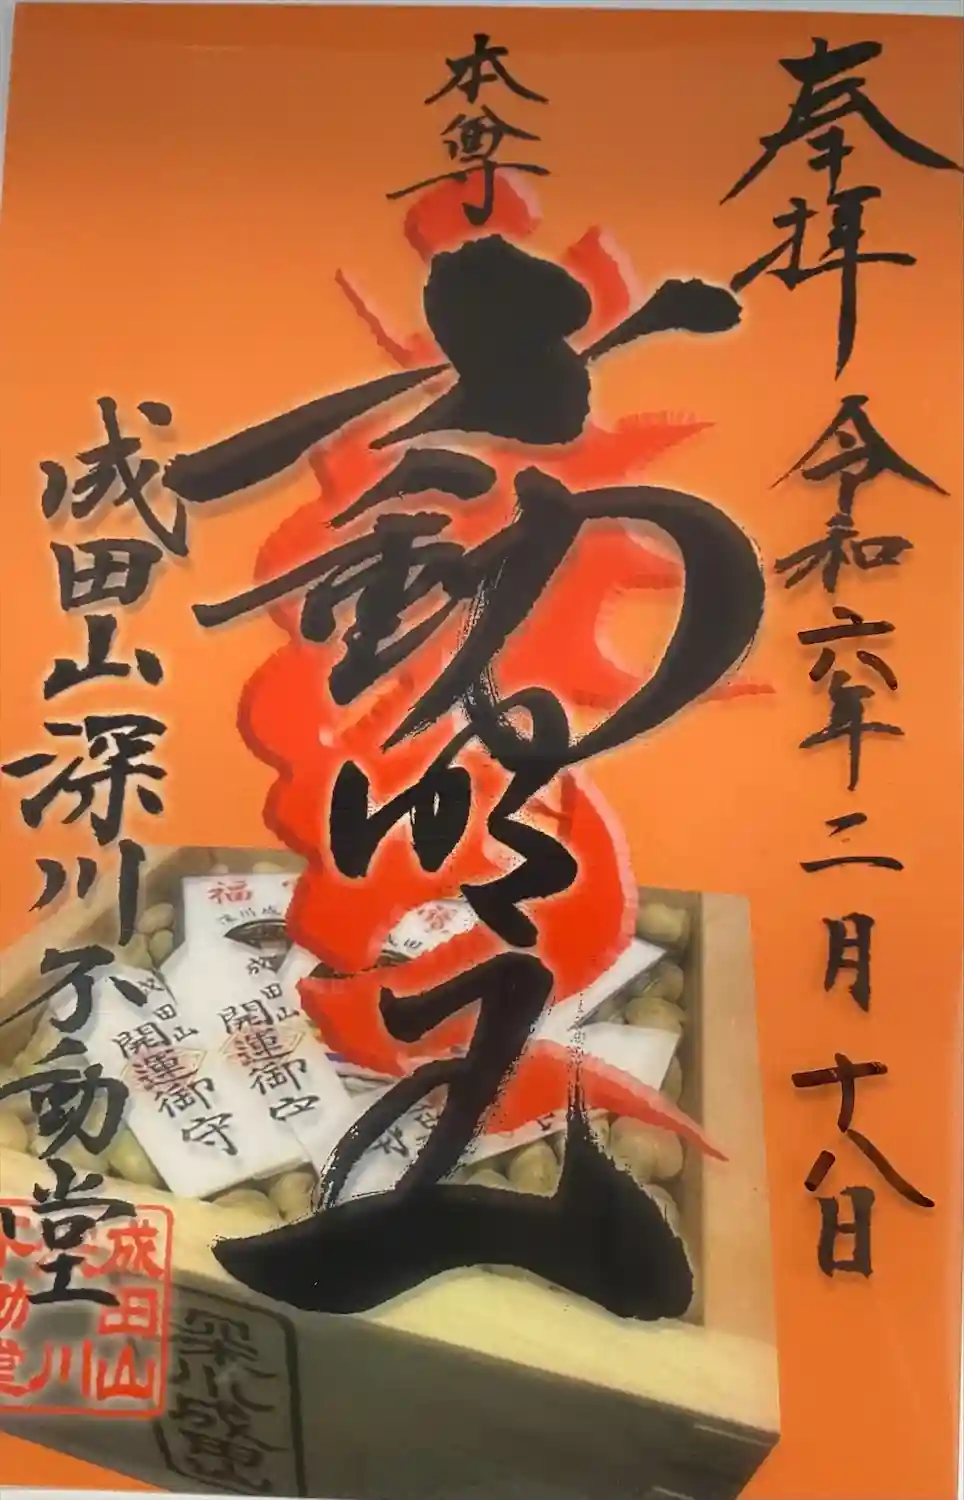 奉拝
令和六年二月十八日
本尊
不動明王
成田山深川不動堂
成田山
深川
不動堂
福
成田山
開運御守
成田山
開運御守